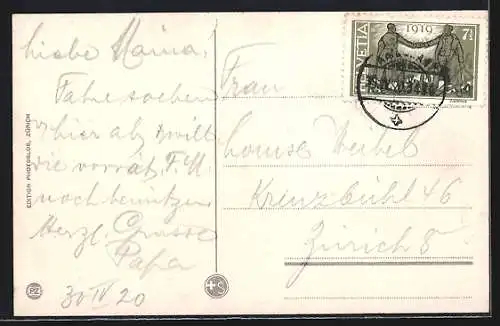 Liebe Mama!
Fahre soeben
hier ab, will
die vorrät. F.M.
noch benützen
Herzl Grüsse
Papa
30 IV 20
EDITION PHOTOGLOB, ZÜRICH
PZ
S
HELVETIA
1919
7½
Frau
Louise Weibel
Kreuzbühl 46
Zürich 8